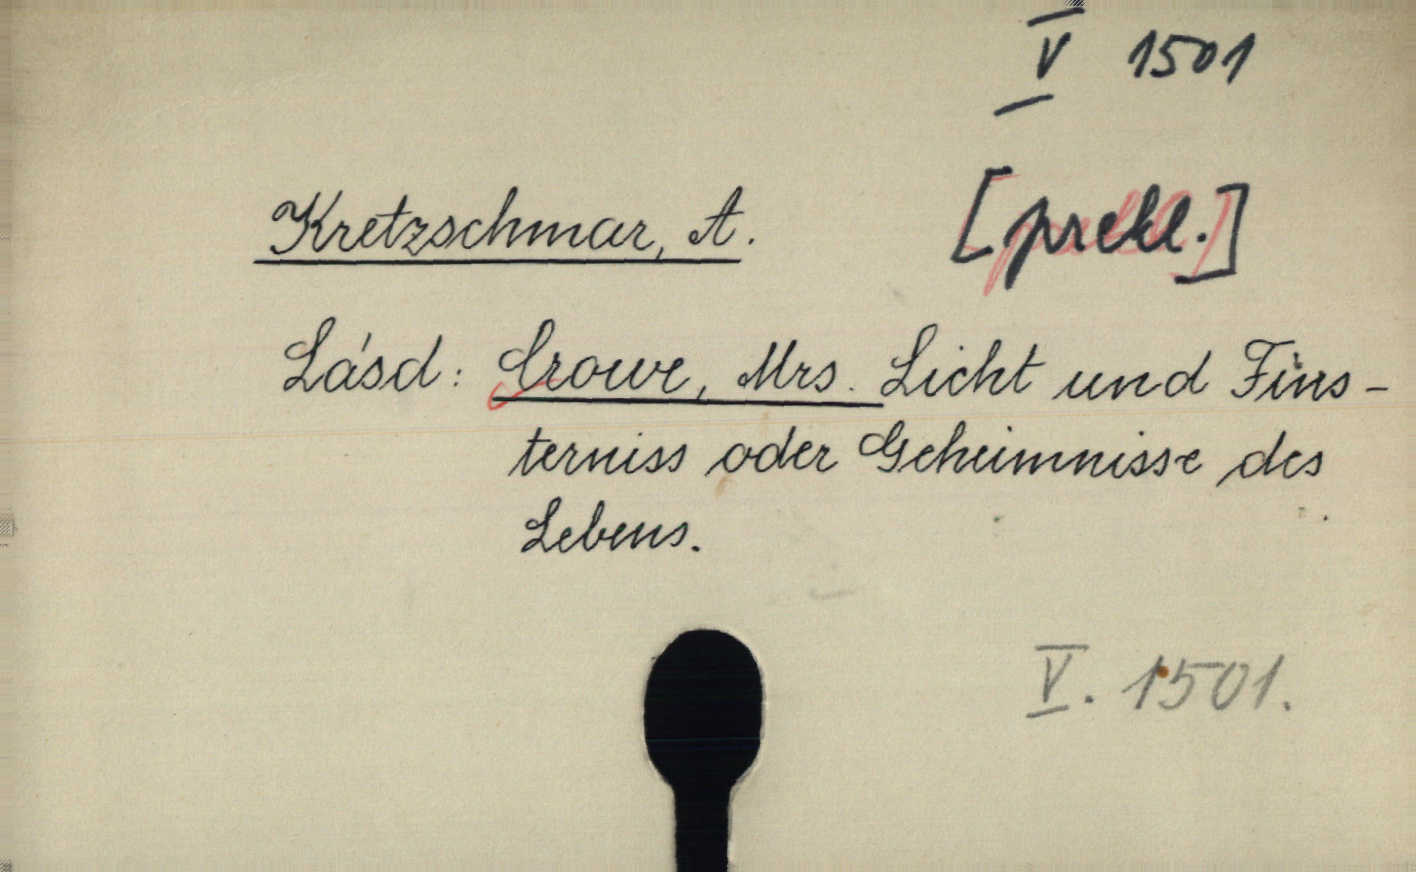 V 1501
Kretzschmar, A. [prekl.]
Lásd: Crowe, Mrs. Licht und Fins-
terniss oder Geheimnisse des
Lebens.
V. 1501.